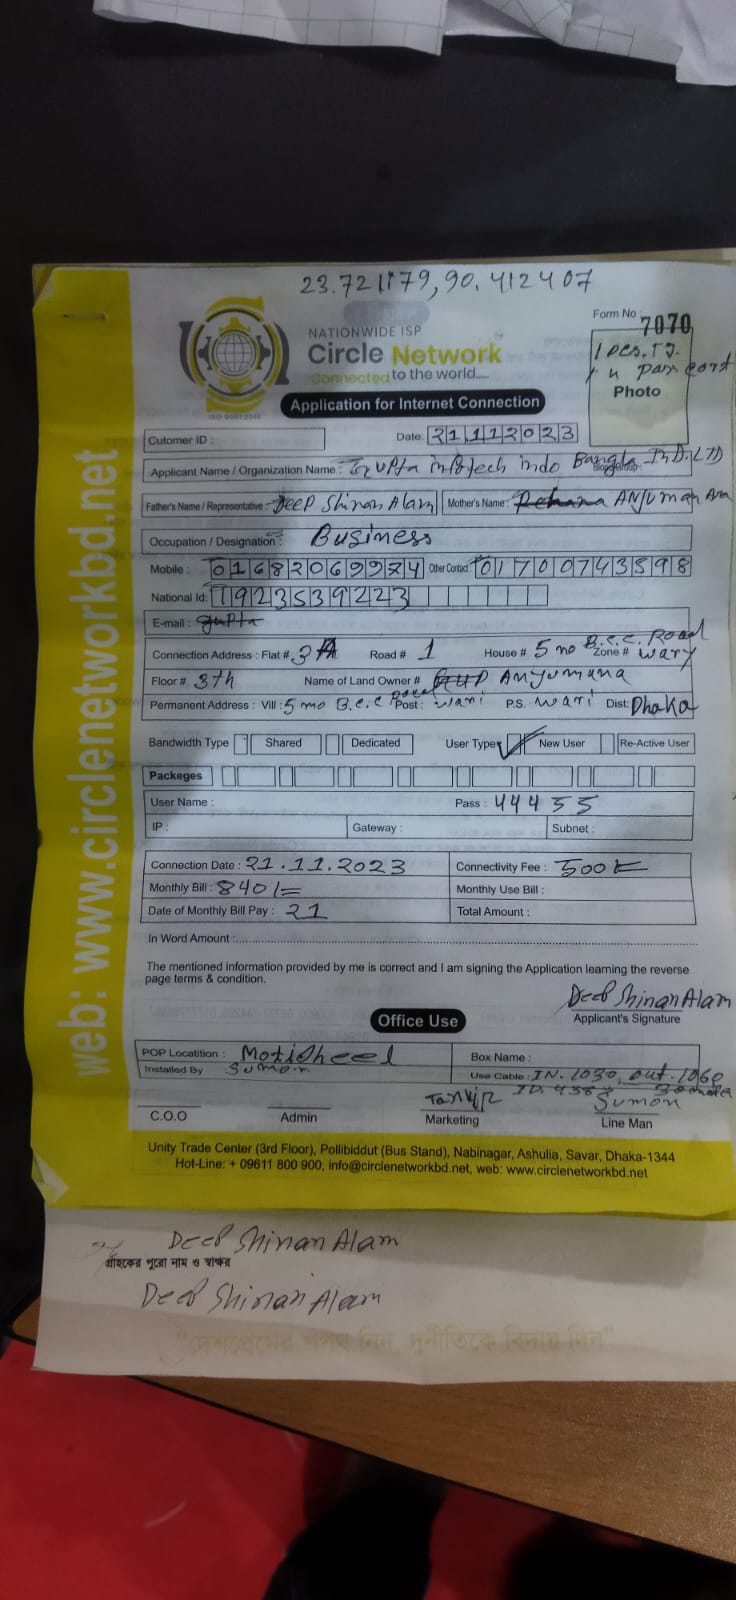 23.721179, 90.412407
NATIONWIDE ISP
Circle Network
Connected to the world.....
ISO 9001:2015
Form No : 7070
1 pcs.
Photo
Application for Internet Connection
Cutomer ID :
Date: 21112023
Applicant Name / Organization Name : infotech indo Bangla LTD
Father's Name / Representative : DEEP Shinan Alam Mother's Name : Rehana ANJUMAN Ara
Occupation / Designation : Business
Mobile : 01682069974 Other Contact 01700743598
National Id: 1923539223
E-mail : gupta
Connection Address : Flat # 3A Road # 1 House # 5 no B.C.C. Road Zone # Wary
Floor # 3th Name of Land Owner # Anjumuna
Permanent Address : Vill : 5 no B.C.C Road Post : Wari P.S. Wari Dist: Dhaka
Bandwidth Type Shared Dedicated User Type New User Re-Active User
Packeges
User Name : Pass : 44455
IP : Gateway : Subnet :
Connection Date : 21.11.2023 Connectivity Fee : 500/=
Monthly Bill : 840/= Monthly Use Bill :
Date of Monthly Bill Pay : 21 Total Amount :
In Word Amount :
The mentioned information provided by me is correct and I am signing the Application learning the reverse
page terms & condition.
Deep Shinan Alam
Applicant's Signature
Office Use
POP Locatition : Motijheel Box Name :
Installed By Sumon Use Cable : IN. 1030, out. 1060
Tanvir Sumon
C.O.O Admin Marketing Line Man
Unity Trade Center (3rd Floor), Pollibiddut (Bus Stand), Nabinagar, Ashulia, Savar, Dhaka-1344
Hot-Line: + 09611 800 900, info@circlenetworkbd.net, web: www.circlenetworkbd.net
web: www.circlenetworkbd.net
Deep Shinan Alam
গ্রাহকের পুরো নাম ও স্বাক্ষর
Deep Shinan Alam
"দেশপ্রেমের শপথ নিন, দুর্নীতিকে বিদায় দিন"